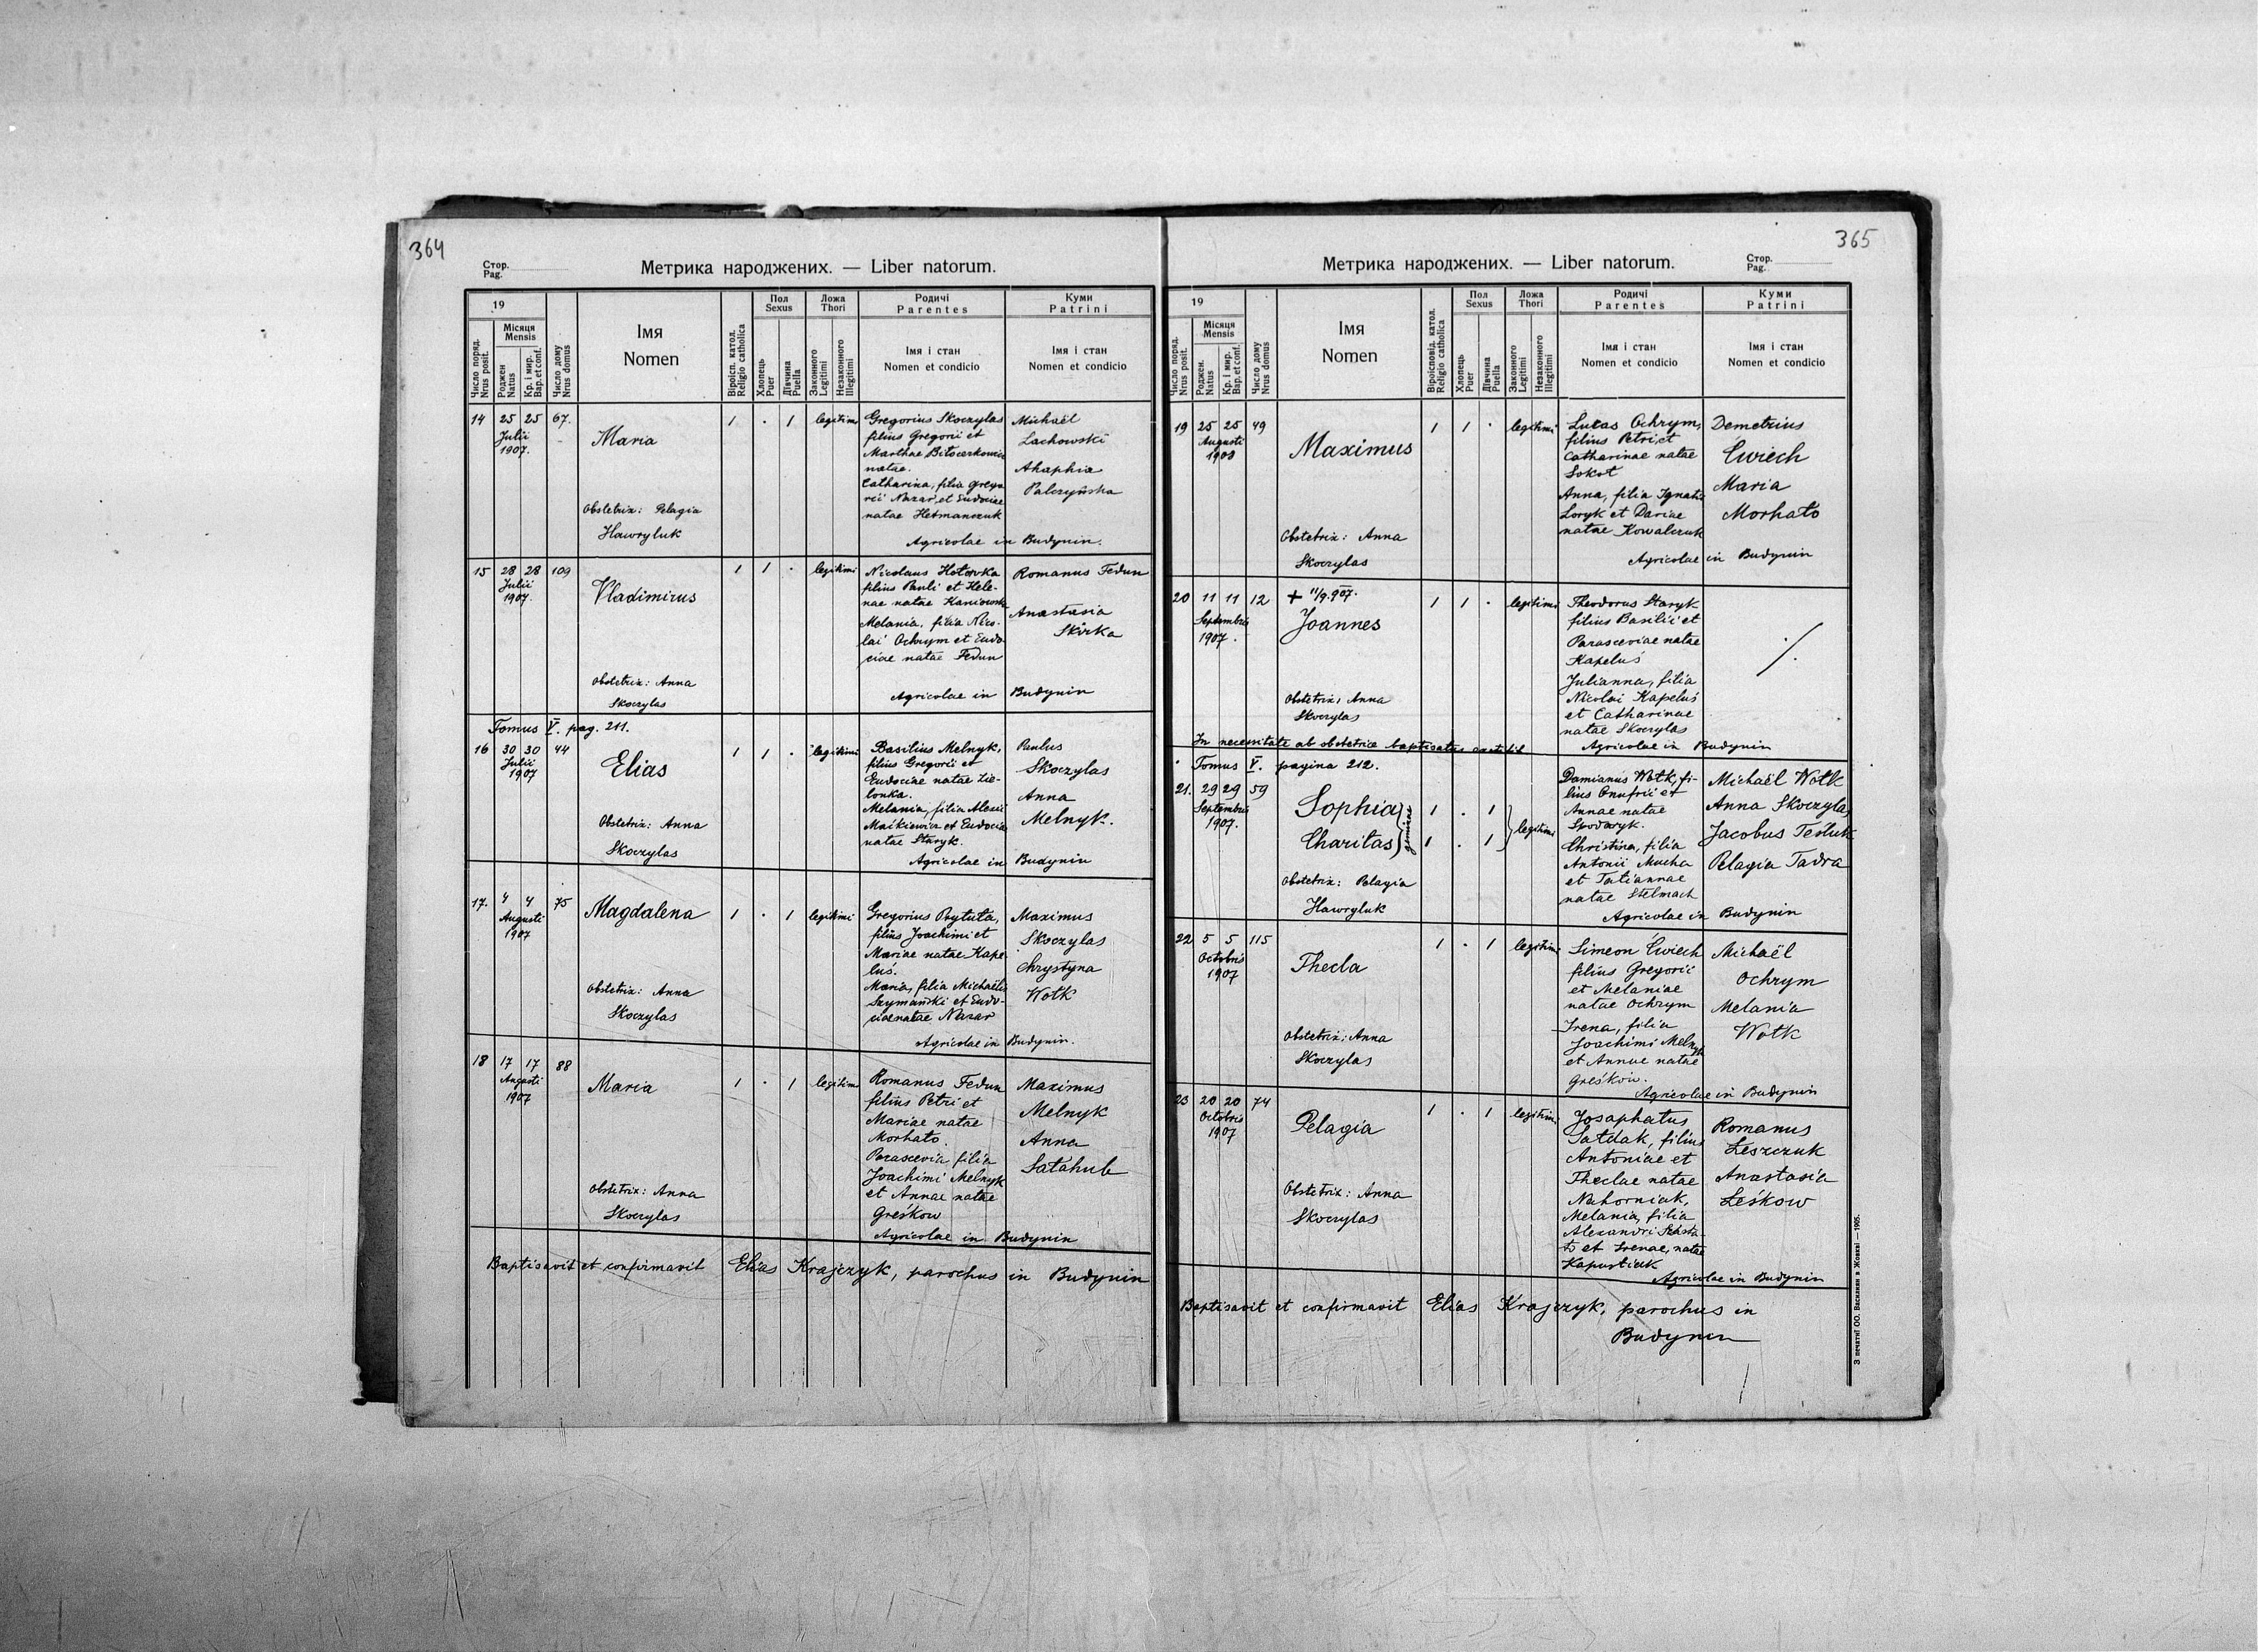 364
Стор.
Pag.
Метрика народжених. — Liber natorum.
19
Число поряд.
Nrus posit.
Місяця
Mensis
Роджен
Natus
Кр. і мир.
Bap. et conf.
Число дому
Nrus domus
Імя
Nomen
Віроісп. катол.
Religio catholica
Пол
Sexus
Хлопець
Puer
Дївчина
Puella
Ложа
Thori
Законного
Legitimi
Незаконного
Illegitimi
Родичі
Parentes
Імя і стан
Nomen et condicio
Куми
Patrini
Імя і стан
Nomen et condicio
14 25 25 67.
Julii
1907.
Maria
Obstetrix: Pelagia
Hawryluk
1 . 1 legitimi
Gregorius Skoczylas
filius Gregorii et
Marthae
natae.
Catharina, filia Grego
rii Nazar, et Eudociae
natae Hetmanczuk
Michaël
Lachowski
Ahaphia
Palczyńska
Agricolae in Budynin.
15 28 28 109
Julii
1907.
Vladimirus
Obstetrix: Anna
Skoczylas
1 1 . legitimi
Nicolaus Hotowka
filius Pauli et Hele-
nae natae Kaniowska
Melania, filia Nico-
lai Ochrym et Eudo-
ciae natae Fedun
Romanus Fedun
Anastasia
Skórka
Agricolae in Budynin
Tomus V. pag. 211.
16 30 30 44
Julii
1907
Elias
Obstetrix: Anna
Skoczylas
1 1 . legitimi
Basilius Melnyk,
filius Gregorii et
Eudociae natae Zie-
lonka.
Melania, filia Alexii
Maśkiewicz et Eudociae
natae Staryk.
Paulus
Skoczylas
Anna
Melnyk.
Agricolae in Budynin
17. 4 4 75
Augusti
1907
Magdalena
Obstetrix: Anna
Skoczylas
1 . 1 legitimi
Gregorius Prytuła,
filius Joachimi et
Mariae natae Kape
luś.
Maria, filia Michaëlis
Szymański et Eudo-
ciae natae Nazar
Maximus
Skoczylas
Chrystyna
Wołk
Agricolae in Budynin.
18 17 17 88
Augusti
1907
Maria
Obstetrix: Anna
Skoczylas
1 . 1 legitimi
Romanus Fedun
filius Petri et
Mariae natae
Morhało.
Parascevia filia
Joachimi Melnyk
et Annae natae
Greśkow
Maximus
Melnyk
Anna
Sałahub
Agricolae in Budynin
Baptisavit et confirmavit Elias Krajczyk, parochus in Budynin
365
Метрика народжених. — Liber natorum.
Стор.
Pag.
19
Число поряд.
Nrus posit.
Місяця
Mensis
Роджен.
Natus
Кр. і мир.
Bap. et conf.
Число дому
Nrus domus
Імя
Nomen
Віроісповід. катол.
Religio catholica
Пол
Sexus
Хлопець
Puer
Дївчина
Puella
Ложа
Thori
Законного
Legitimi
Незаконного
Illegitimi
Родичі
Parentes
Імя і стан
Nomen et condicio
Куми
Patrini
Імя і стан
Nomen et condicio
19 25 25 49
Augusti
Maximus
Obstetrix: Anna
Skoczylas
1 1 . legitimi
Lucas Ochrym,
filius Petri, et
Catharinae natae
Sokoł
Anna, filia Ignatii
Loryk et Dariae
natae Kowalczuk
Demetrius
Ćwiech
Maria
Morhało
Agricolae in Budynin
20 11 11 12
Septembris
1907.
+ 11/9.907.
Joannes
Obstetrix: Anna
Skoczylas
1 1 . legitimi
Theodorus Staryk
filius Basilii et
Parasceviae natae
Kapeluś
Julianna, filia
Nicolai Kapeluś
et Catharinae
natae Skoczylas
Agricolae in Budynin
In necessitate ab obstetrice baptisatus
Tomus V. pagina 212.
21. 29 29 59
Septembris
1907.
Sophia
Charitas
gemine
Obstetrix: Pelagia
Hawryluk
1 . 1
1 . 1
legitimi
Damianus Wołk, fi-
lius Onufrii et
Annae natae
Spodaryk.
Christina, filia
Antonii Mucha
et Tatiannae
natae Stelmach
Michaël Wołk
Anna Skoczylas
Jacobus Teśluk
Pelagia Tadra
Agricolae in Budynin
22 5 5 115
Octobris
1907
Thecla
Obstetrix: Anna
Skoczylas
1 . 1 legitimi
Simeon Ćwiech
filius Gregorii
et Melaniae
natae Ochrym
Irena, filia
Joachimi Melnyk
et Annae natae
Greśkow.
Michaël
Ochrym
Melania
Wołk
Agricolae in Budynin
23 20 20 74
Octobris
1907
Pelagia
Obstetrix: Anna
Skoczylas
1 . 1 legitimi
Josaphatus
Sałdak, filius
Antoniae et
Theclae natae
Nahorniak,
Melania, filia
Alexandri
et Irenae, natae
Kapustiak
Romanus
Leszczuk
Anastasia
Leśkow
Agricolae in Budynin
Baptisavit et confirmavit Elias Krajczyk, parochus in
Budynin
З печатнї ОО. Василиян в Жовкві — 1905.